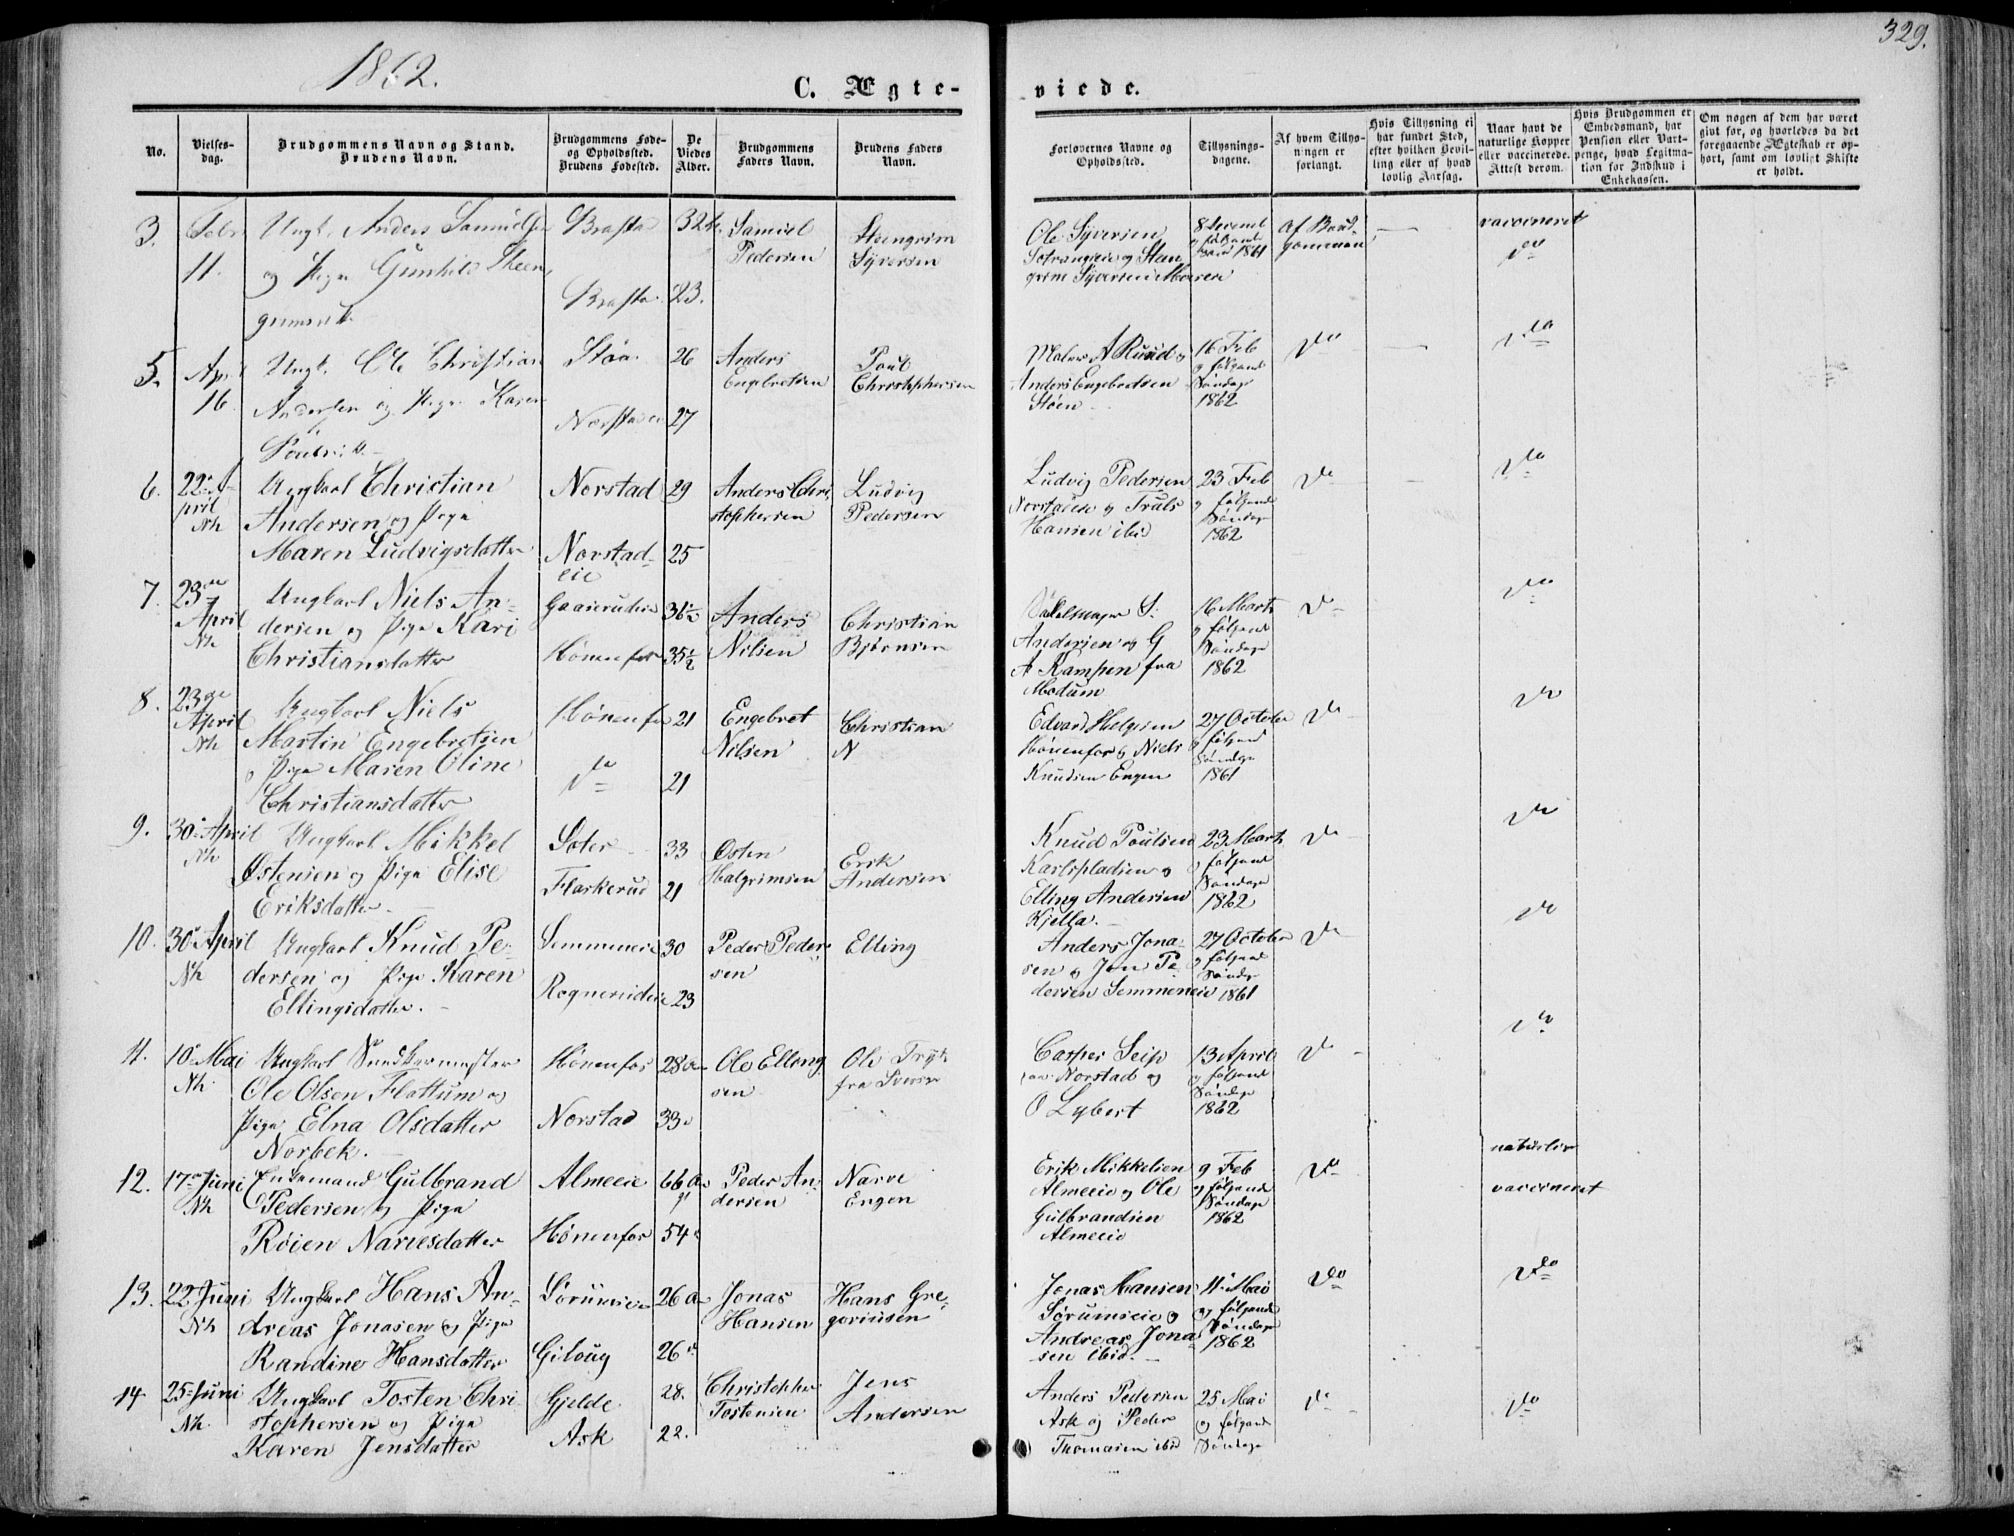 329.
1862.
C. Ægte-
viede.
No.
Vielses-
dag.
Brudgommens Navn og Stand.
Brudens Navn.
Brudgommens Føde-
og Opholdssted.
Brudens Fødested.
De
Viedes
Alder.
Brudgommens
Faders Navn.
Brudens Faders
Navn.
Forlovernes Navne og
Opholdssted.
Tillysnings-
dagene.
Af hvem Tillys-
ningen er
forlangt.
Hvis Tillysning ei
har fundet Sted,
efter hvilken Bevil-
ling eller af hvad
lovlig Aarsag.
Naar havt de
naturlige Kopper
eller vaccinerede.
Attest derom.
Hvis Brudgommen er
Embedsmand, har
Pension eller Vart-
penge, hvad Legitma-
tion for Indskud i
Enkekassen.
Om nogen af dem har været
givt for, og hvorledes da det
foregaaende Ægteskab er op-
hørt, samt om lovligt Skifte
er holdt.
3.
Febr
11.
Ungk. Anders Samuelsen
og Pige Gunhild Steen
grimsdt.
Brasta
Brasta
32
23.
Samuel
Pedersen
Steengrim
Syversen
Ole Syversen
og Steen
grim Syversen Moeren
8 Decemb
og følgende
1861
Af Brud-
gommen
vaccineret
do
5.
April
16.
Ungk. Ole Christian
Andersen og Pige Karen
Poulsdt.
Støa
26
27
Anders
Engebretsen
Poul
Christophersen
Maler A Ruud og
Anders Engebretsen
Støen
16 Feb
og følgende
Søndage
1862
do
do
6.
22 A-
pril
Nh
Ungkarl Christian
Andersen og Pige
Maren Ludvigsdatter
Norstad
Norstad-
eie
29
25
Anders Chri-
stophersen
Ludvig
Pedersen
Ludvig Pedersen
Norstadeie og Truls
Hansen ibid
23 Feb
og følgende
Søndage
1862
do
do
7.
23de
April
Nh
Ungkarl Niels An-
dersen og Pige Kari
Christiansdatter
Hønenfos
31½
35½
Anders
Nilsen
Christian
Bjørnsen
Sadelmager S.
Andersen og G
A Rampen fra
Modum
16 Marts
og følgende
Søndage
1862
do
do
8.
23de
April
Nh
Ungkarl Niels
Martin Engebretsen
og Pige Maren Oline
Christiansdatter
Hønenfos
do
21
21
Engebret
Nilsen
Christian
N
Edvard Helgesen
Hønenfos og Niels
Knudsen Engen
27 October
og følgend
Søndage
1861
do
do
9.
30 April
Nh
Ungkarl Mikkel
Østensen og Pige Elise
Eriksdatter.
Soter
Flaskerud
33
21
Østen
Halgrimsen
Erik
Andersen
Knud Poulsen
Karlspladsen og
Elling Andersen
Kjella.
23 Marts
og følgend
Søndage
1862
do
do
10.
30 April
Nh
Ungkarl Knud Pe-
dersen og Pige Karen
Ellingsdatter.
Semmeneie
30
23
Peder Peder-
sen
Elling
Anders Jona-
sen og Jon Pe-
dersen Semmeneie
27 October
og følgend
Søndage
1861
do
do
11.
10 Mai
Nh.
Ungkarl Snedkermester
Ole Olsen Flattum og
Pige Elna Olsdatter
Norbek.
Hønenfos
Norstad
28
33
Ole Elling-
sen
Ole
Casper Seip
Norstad og
O Lybert
13 April
og følgend
Søndage
1862
do
do
12.
17 Juni
Nh
Enkemand Gulbrand
Pedersen og Pige
Røien Narvesdatter
Almeeie
Hønenfos
66
54
Peder An-
dersen
Narve
Engen
Erik Mikkelsen
Almeeie og Ole
Gulbrandsen
Almeeie
9 Feb
og følgende
Søndage
1862
do
naturlige
vaccineret
13.
22 Juni
Nh
Ungkarl Hans An-
dreas Jonasen og Pige
Randine Hansdatter
Sørumeie
Gilbug
26
26
Jonas
Hansen
Hans Gre-
goriusen
Jonas Hansen
Sørumseie og
Andreas Jona-
sen ibid.
11 Mai
og følgende
Søndage
1862
do
do
14.
25 Juni
Nh.
Ungkarl Tosten Chri-
stophersen og Pige
Karen Jensdatter
Gjelde
Ask
28.
22.
Christopher
Tostensen
Jens
Andersen
Anders Pedersen
Ask og Peder
Thomasen ibid
25 Mai
og følgend
Søndage
do
do